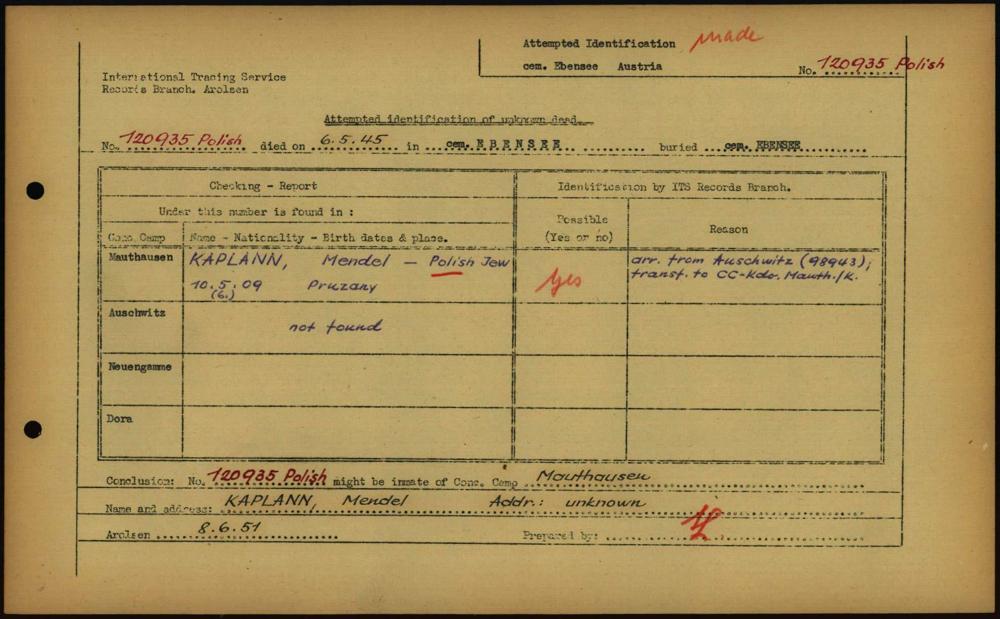 Attempted Identification made
cem. Ebensee Austria
No. 120935 Polish
International Tracing Service
Records Branch. Arolsen
Attempted identification of unknown dead.
No. 120935 Polish died on 6.5.45 in cem. EBENSEE buried cem. EBENSEE
Checking - Report
Identification by ITS Records Branch.
Under this number is found in :
Possible
(Yes or no)
Reason
Conc. Camp
Name - Nationality - Birth dates & place.
Mauthausen
KAPLANN, Mendel — Polish Jew
10.5.09 Pruzany
(6.)
Yes
arr. from Auschwitz (98943);
transf. to CC-Kdo. Mauth./K.
Auschwitz
not found
Neuengamme
Dora
Conclusion: No. 120935 Polish might be inmate of Conc. Camp Mauthausen
Name and address: KAPLANN, Mendel Addr.: unknown
Arolsen 8.6.51 Prepared by: